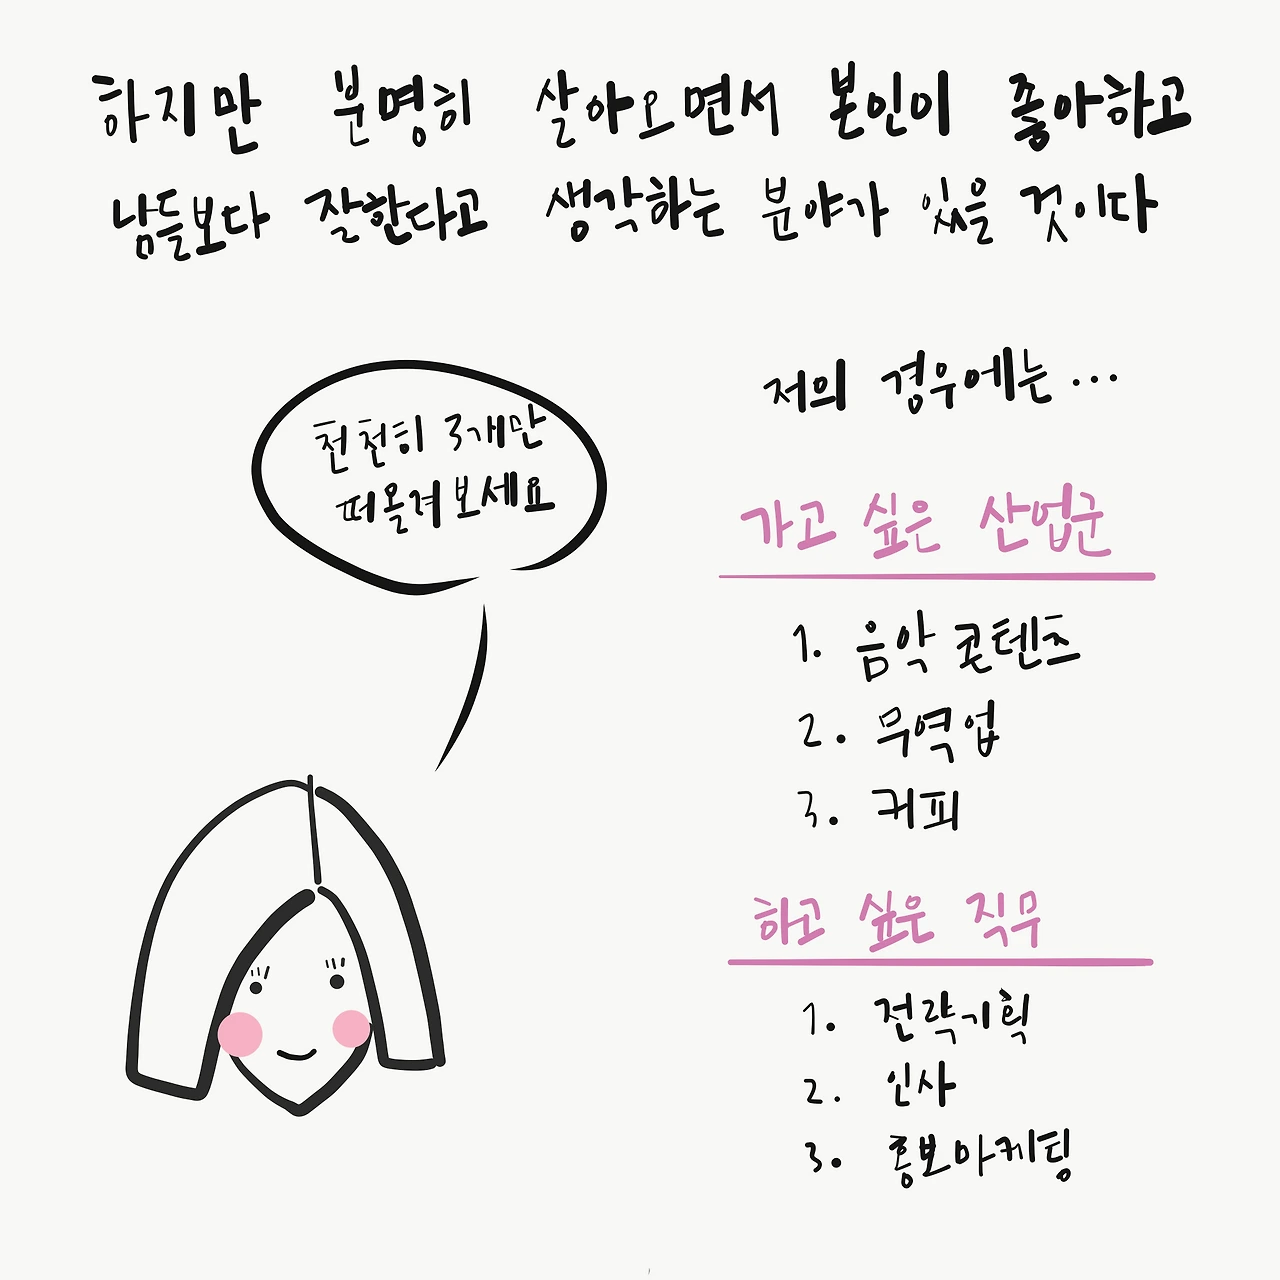 하지만 분명히 살아오면서 본인이 좋아하고
남들보다 잘한다고 생각하는 분야가 있을 것이다
천천히 3개만
떠올려보세요
저의 경우에는...
가고 싶은 산업군
1. 음악 콘텐츠
2. 무역업
3. 커피
하고 싶은 직무
1. 전략기획
2. 인사
3. 홍보마케팅